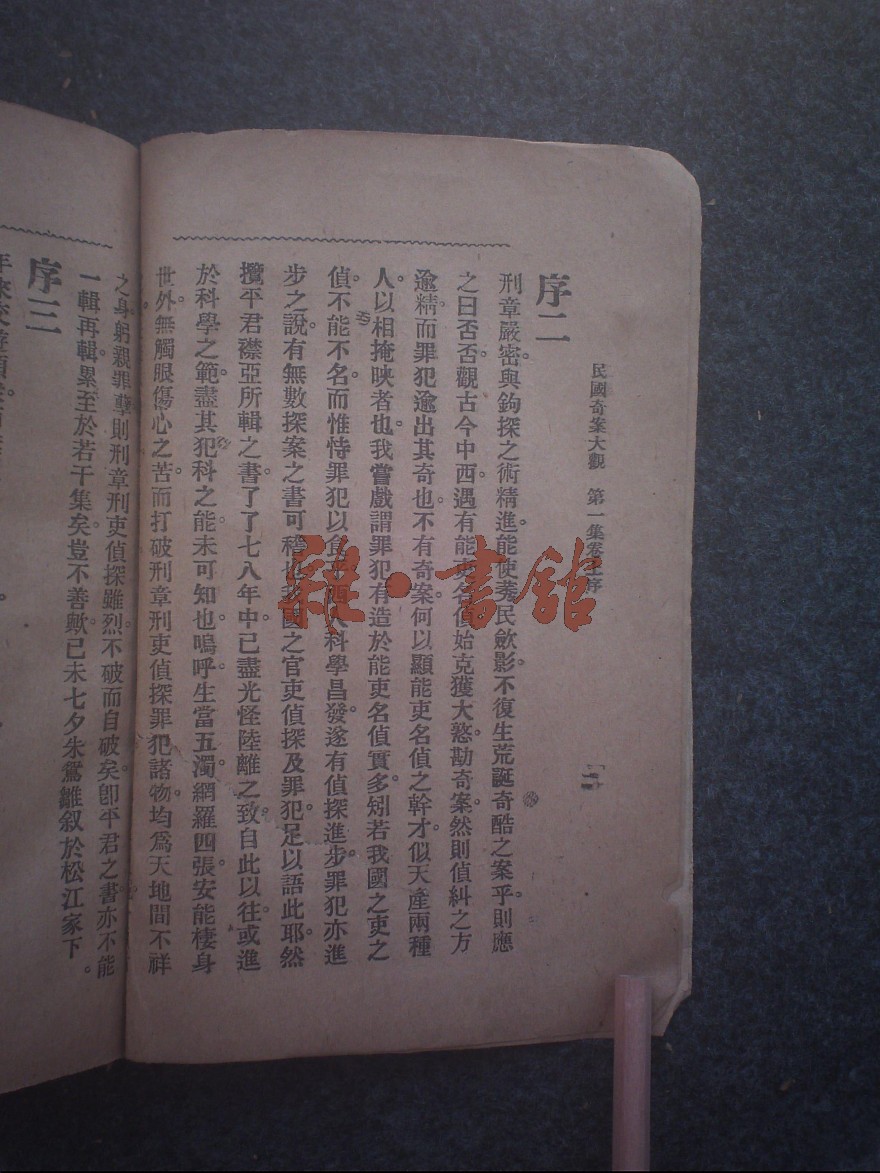 民國奇案大觀 第一集卷上序
二
序二
刑章嚴密。與鉤探之術精進。能使莠民歛影。不復生荒誕奇酷之案乎。則應
之曰否否。觀古今中西。遇有能吏名偵。始克獲大憝勘奇案。然則偵糾之方
逾精。而罪犯逾出其奇也。不有奇案。何以顯能吏名偵之幹才。似天產兩種
人。以相掩映者也。我嘗戲謂罪犯有造於能吏名偵實多。矧若我國之吏之
偵。不能不名。而惟恃罪犯以食乎。西人科學昌發。遂有偵探進步。罪犯亦進
步之說。有無數探案之書可稽也。我國之官吏偵探及罪犯。足以語此耶。然
攬平君襟亞所輯之書。了了七八年中。已盡光怪陸離之致。自此以往。或進
於科學之範。盡其犯科之能。未可知也。嗚呼。生當五濁。網羅四張。安能棲身
世外。無觸眼傷心之苦。而打破刑章刑吏偵探罪犯諸物。均爲天地間不祥
之身。躬親罪孽。則刑章刑吏偵探雖烈。不破而自破矣。卽平君之書。亦不能
一輯再輯。累至於若干集矣。豈不善歟。已未七夕朱鴛雛叙於松江家下。
序三
雜·書館